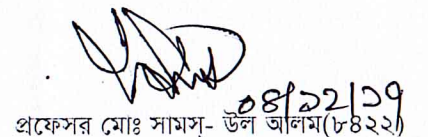 ০৪/১২/১৭
প্রফেসর মোঃ সামস্- উল আলম(৮৪২২)